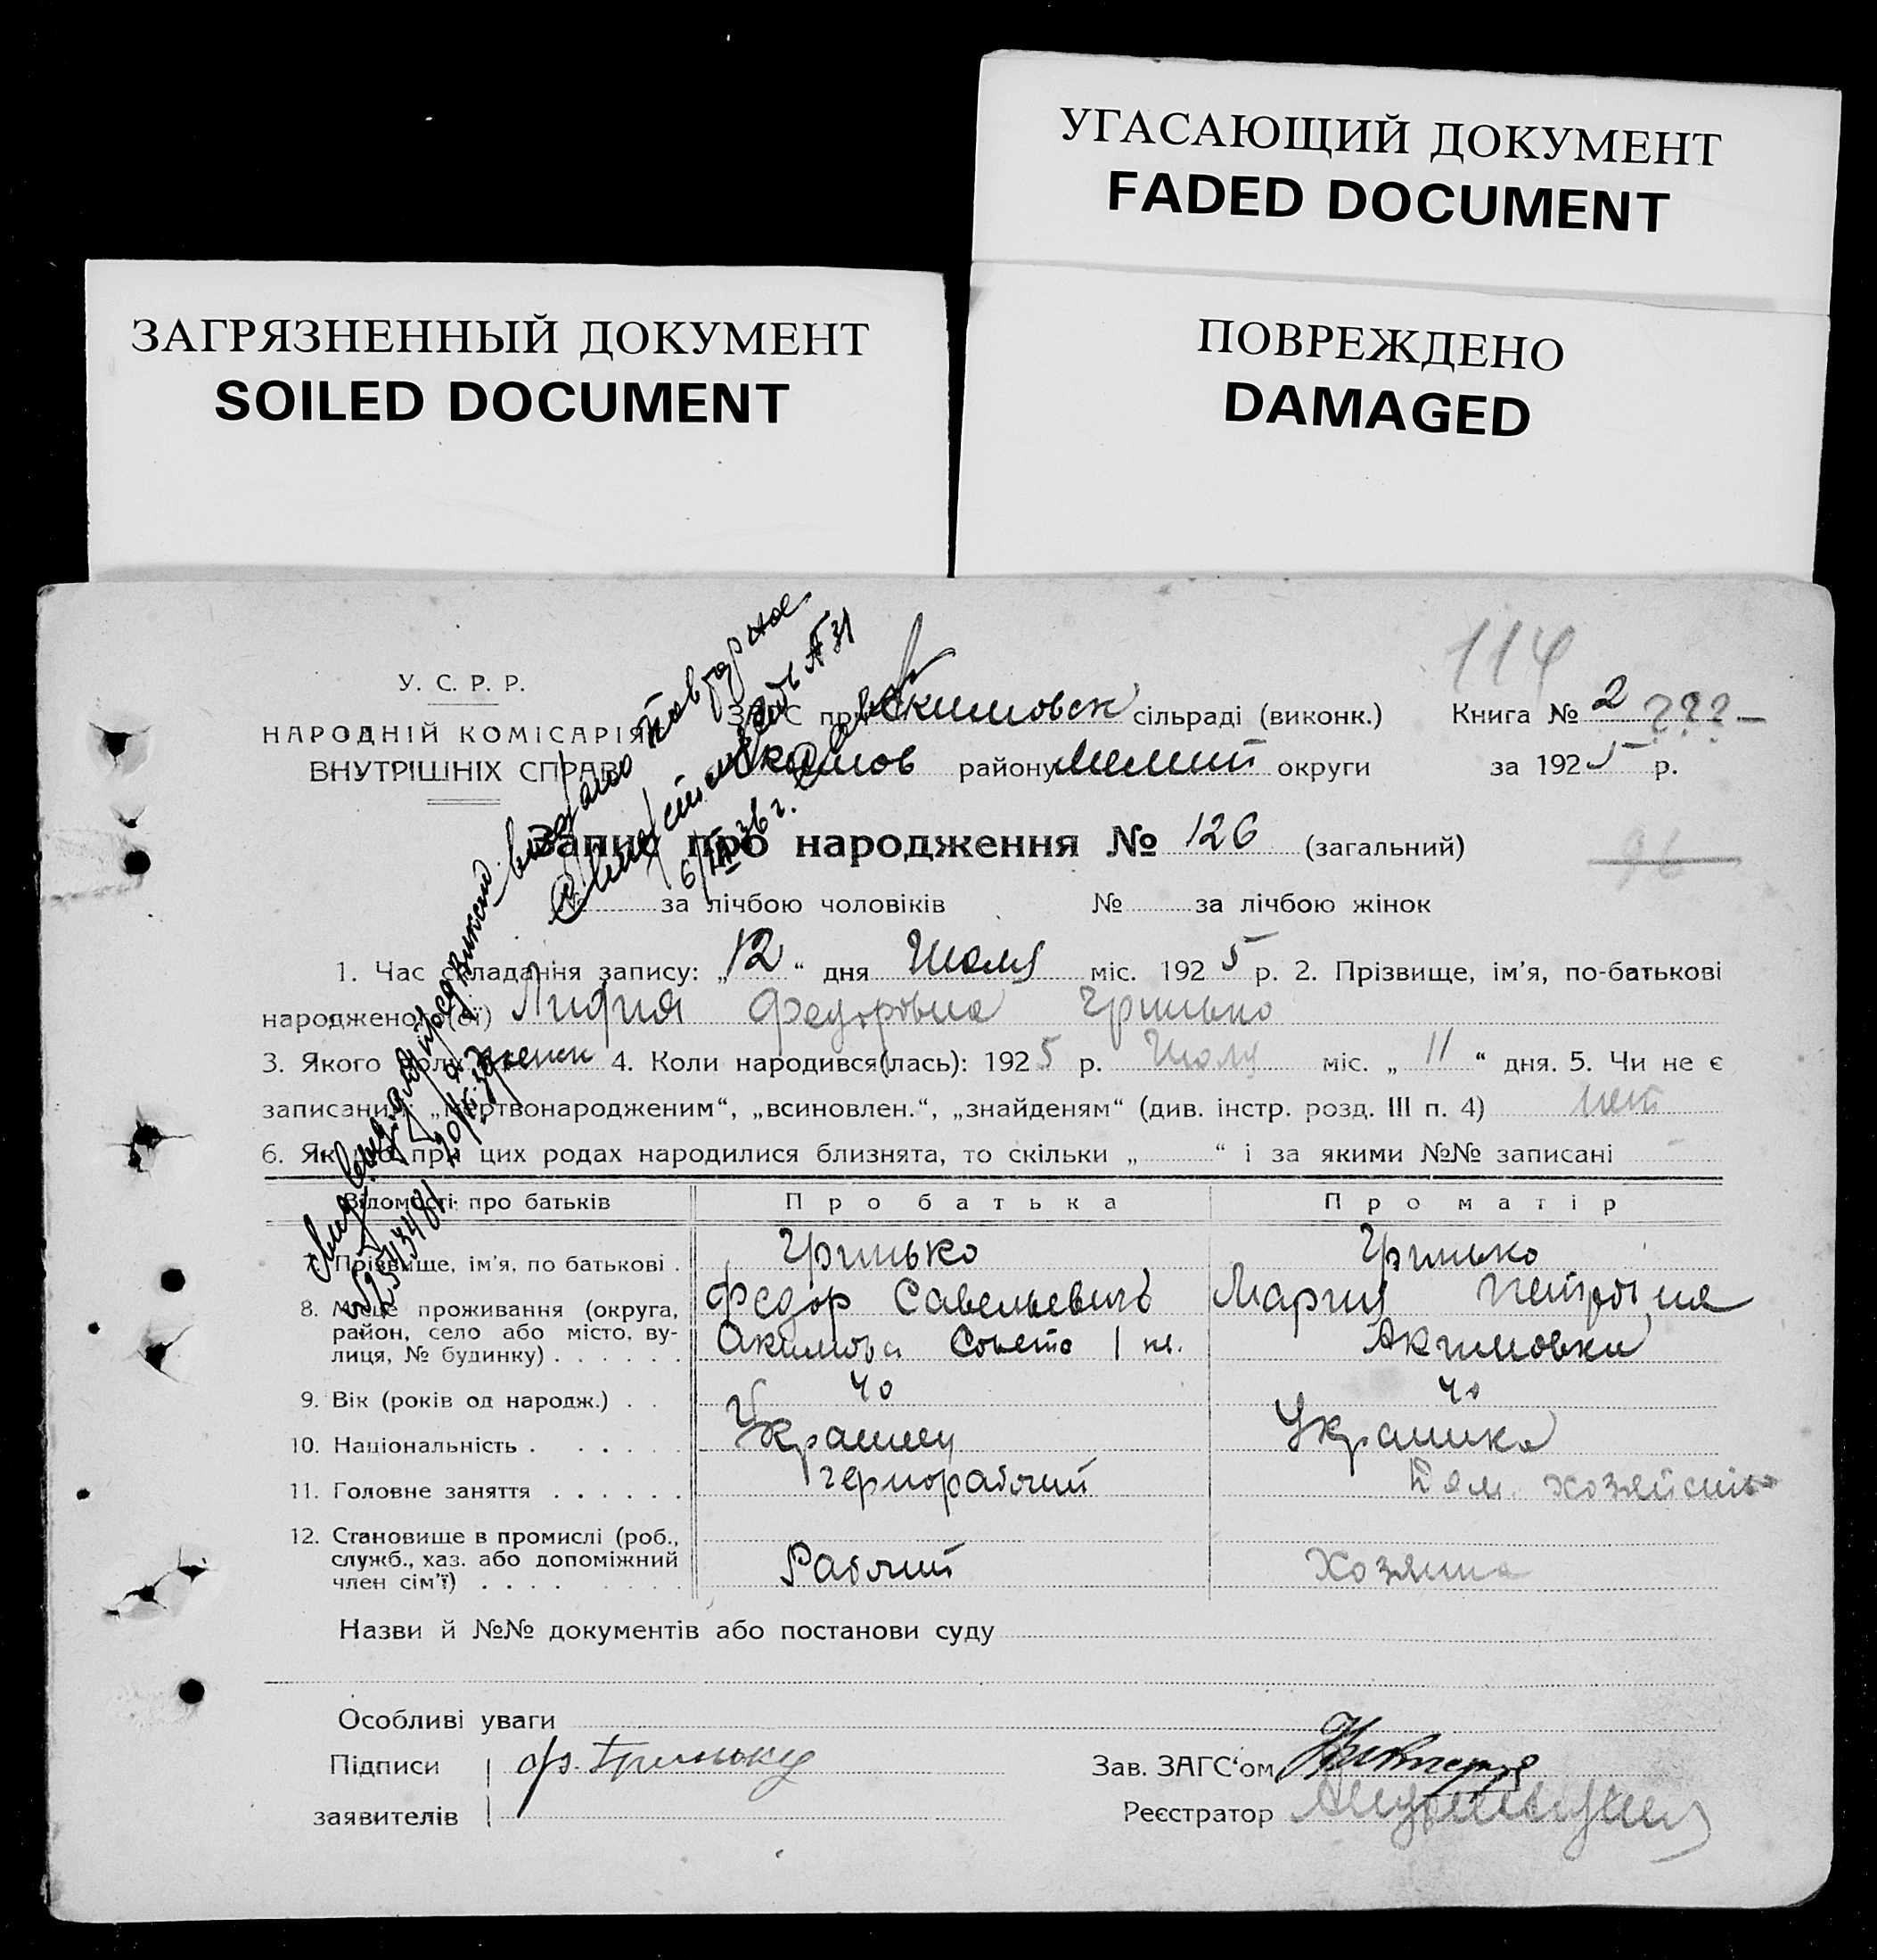 УГАСАЮЩИЙ ДОКУМЕНТ
FADED DOCUMENT
ЗАГРЯЗНЕННЫЙ ДОКУМЕНТ
SOILED DOCUMENT
ПОВРЕЖДЕНО
DAMAGED
114
У. С. Р. Р.
НАРОДНІЙ КОМІСАРІЯТ
ВНУТРІШНІХ СПРАВ
ЗАГС при Акимовск сільраді (виконк.)
Книга № 2 ??? —
Акимов району Мелит округи
за 1925 р.
Запис про народження № 126 (загальний)
96
№ за лічбою чоловіків № за лічбою жінок
1. Час складання запису: „12“ дня Июля міс. 1925 р. 2. Прізвище, ім’я, по-батькові
народженого(ої) Лидия Федоровна Гринько
3. Якого полу женск 4. Коли народився(лась): 1925 р. Июля міс. „11“ дня. 5. Чи не є
записаним: „мертвонародженим“, „всиновлен.“, „знайденям“ (див. інстр. розд. III п. 4) нет
6. Як що при цих родах народилися близнята, то скільки „ “ і за якими №№ записані
выдано повторное
свидетельство № 31
6/III 36 г.
Відомості про батьків
Про батька
Про матір
7. Прізвище, ім’я, по батькові .
Гринько
Федор Савельевичъ
Гринько
Мария Петровна
8. Місце проживання (округа,
район, село або місто, ву-
лиця, № будинку) . . . . . .
Акимовка Совета 1 к.
Акимовки
9. Вік (років од народж.) . .
40
40
10. Національність . . . . . .
Украинец
Украинка
11. Головне заняття . . . . . .
чернорабочий
Дом. хозяйство
12. Становище в промислі (роб.,
служб., хаз. або допоміжний
член сім’ї) . . . .
Рабочий
Хозяйка
Назви й №№ документів або постанови суду
Особливі уваги
Підписи
заявителів
Ф. Гринько
Зав. ЗАГС‘ом
Реєстратор